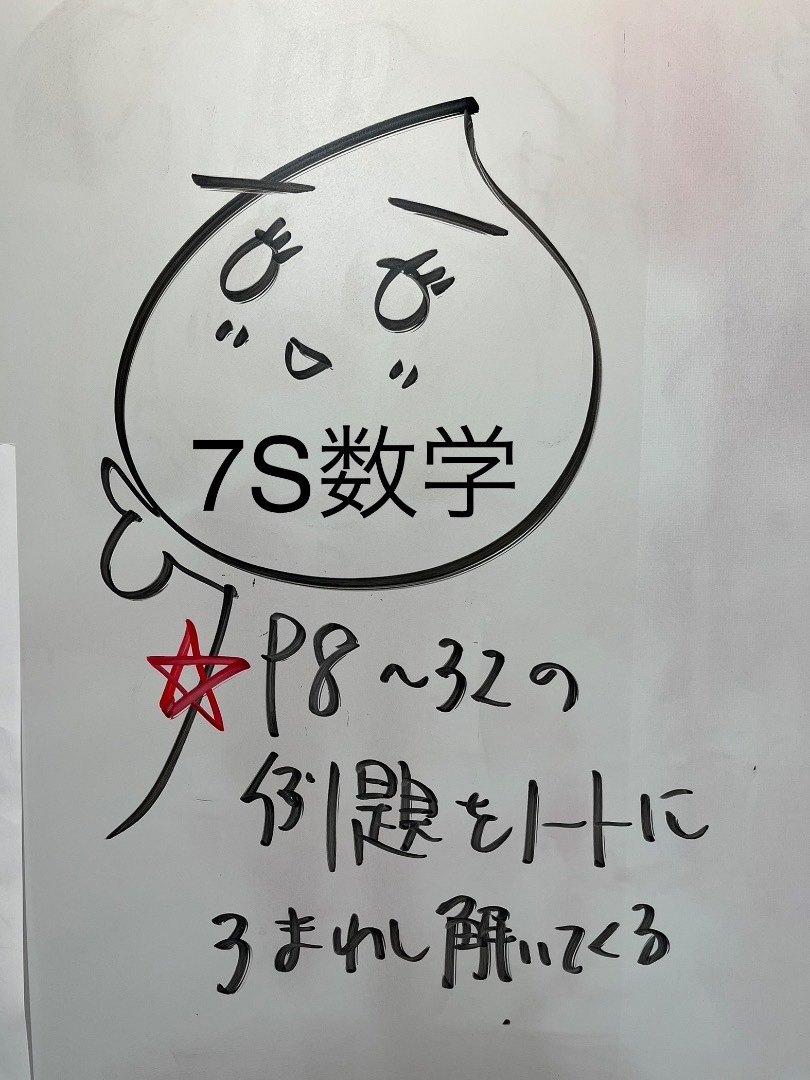 7S数学
☆P8~32の
例題をノートに
3まわし解いてくる